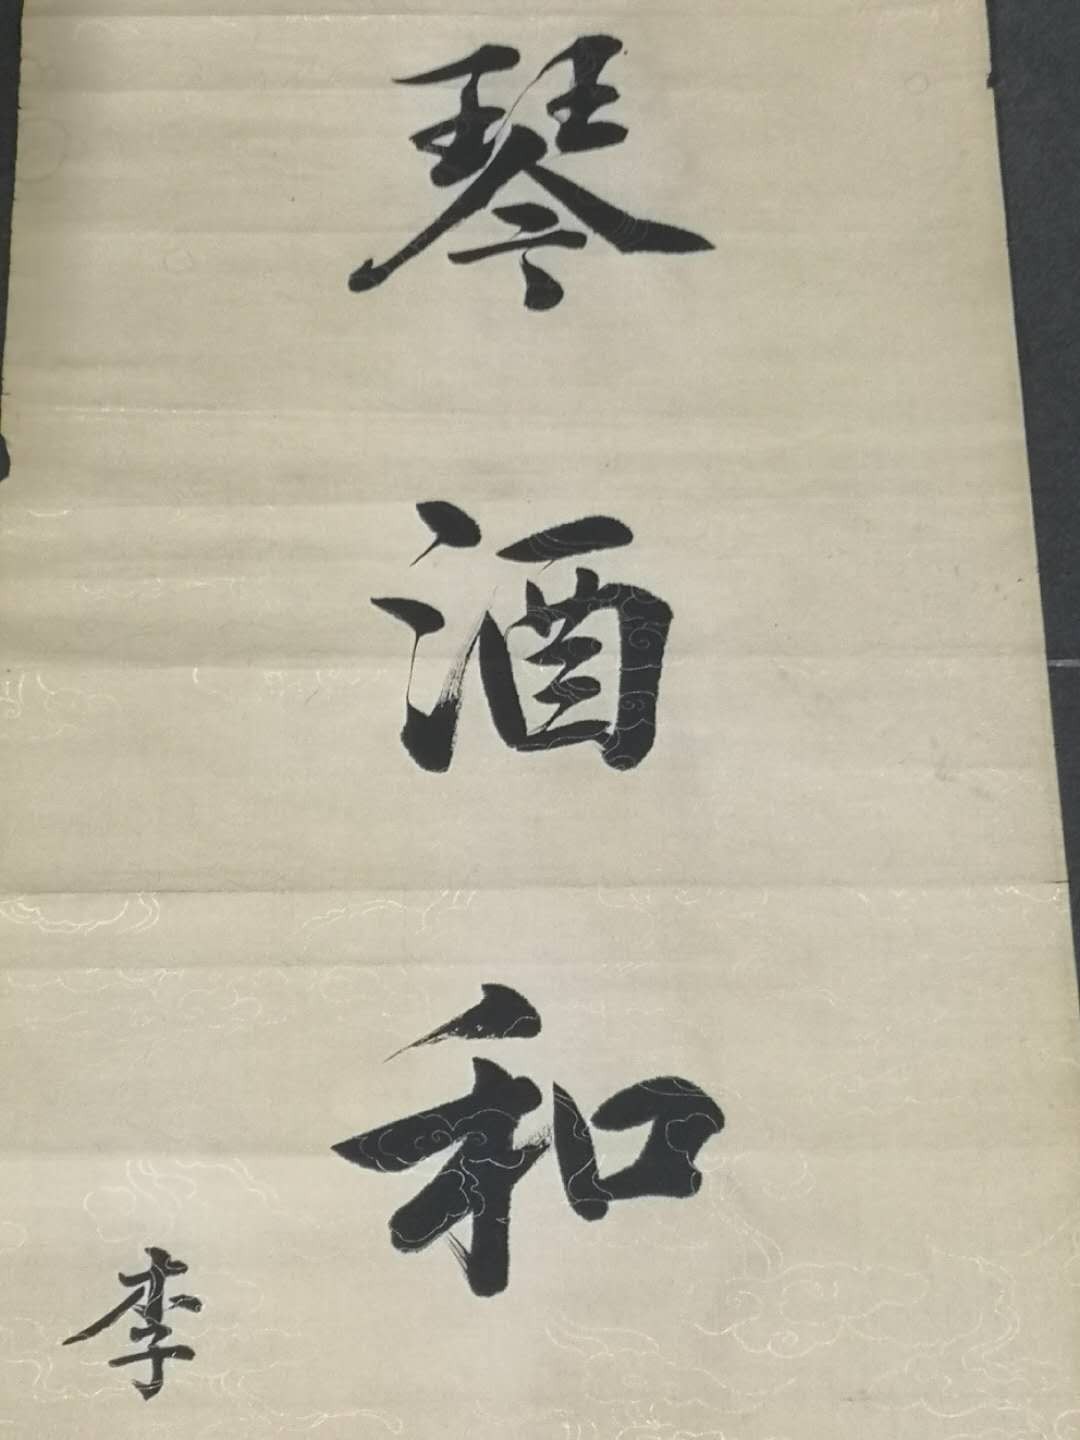 琴酒和
李